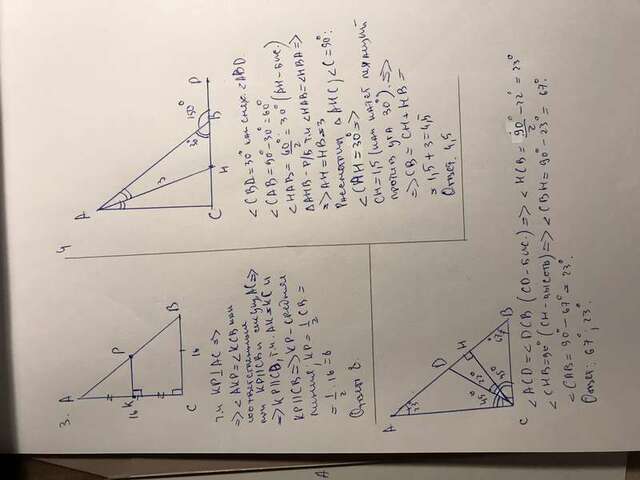 3.
A
P
K
16
C
16
B
т.к KP⊥AC =>
=> <AKP = <KCB как
соответственные
при KP||CB и секущ AC =>
=> KP||CB, т.к. AK=KC и
KP||CB => KP - средняя
линия, KP = 1/2 CB =
= 1/2 · 16 = 8
Ответ 8.
4
A
3
30°
150°
B
D
C
H
<CBD = 30° как смеж. <ABD.
<CAB = 90° - 30° = 60°
<HAB = 60°/2 = 30° (AH - бис.)
△AHB - р/б т.к <HAB = <HBA =>
=> AH = HB = 3
Рассмотрим △AHC, <C = 90°:
<CAH = 30° =>
CH = 1,5 (как катет лежащий
против угла 30°) =>
=> CB = CH + HB =
= 1,5 + 3 = 4,5
Ответ: 4,5
A
23
D
H
67°
B
45°
22°
45°
C
<ACD = <DCB (CD - бис.) => <HCB = 90°/2 - 22° = 23°
<CHB = 90° (CH - высота) => <CBH = 90° - 23° = 67°
<CAB = 90° - 67° = 23°
Ответ: 67°, 23°.
A